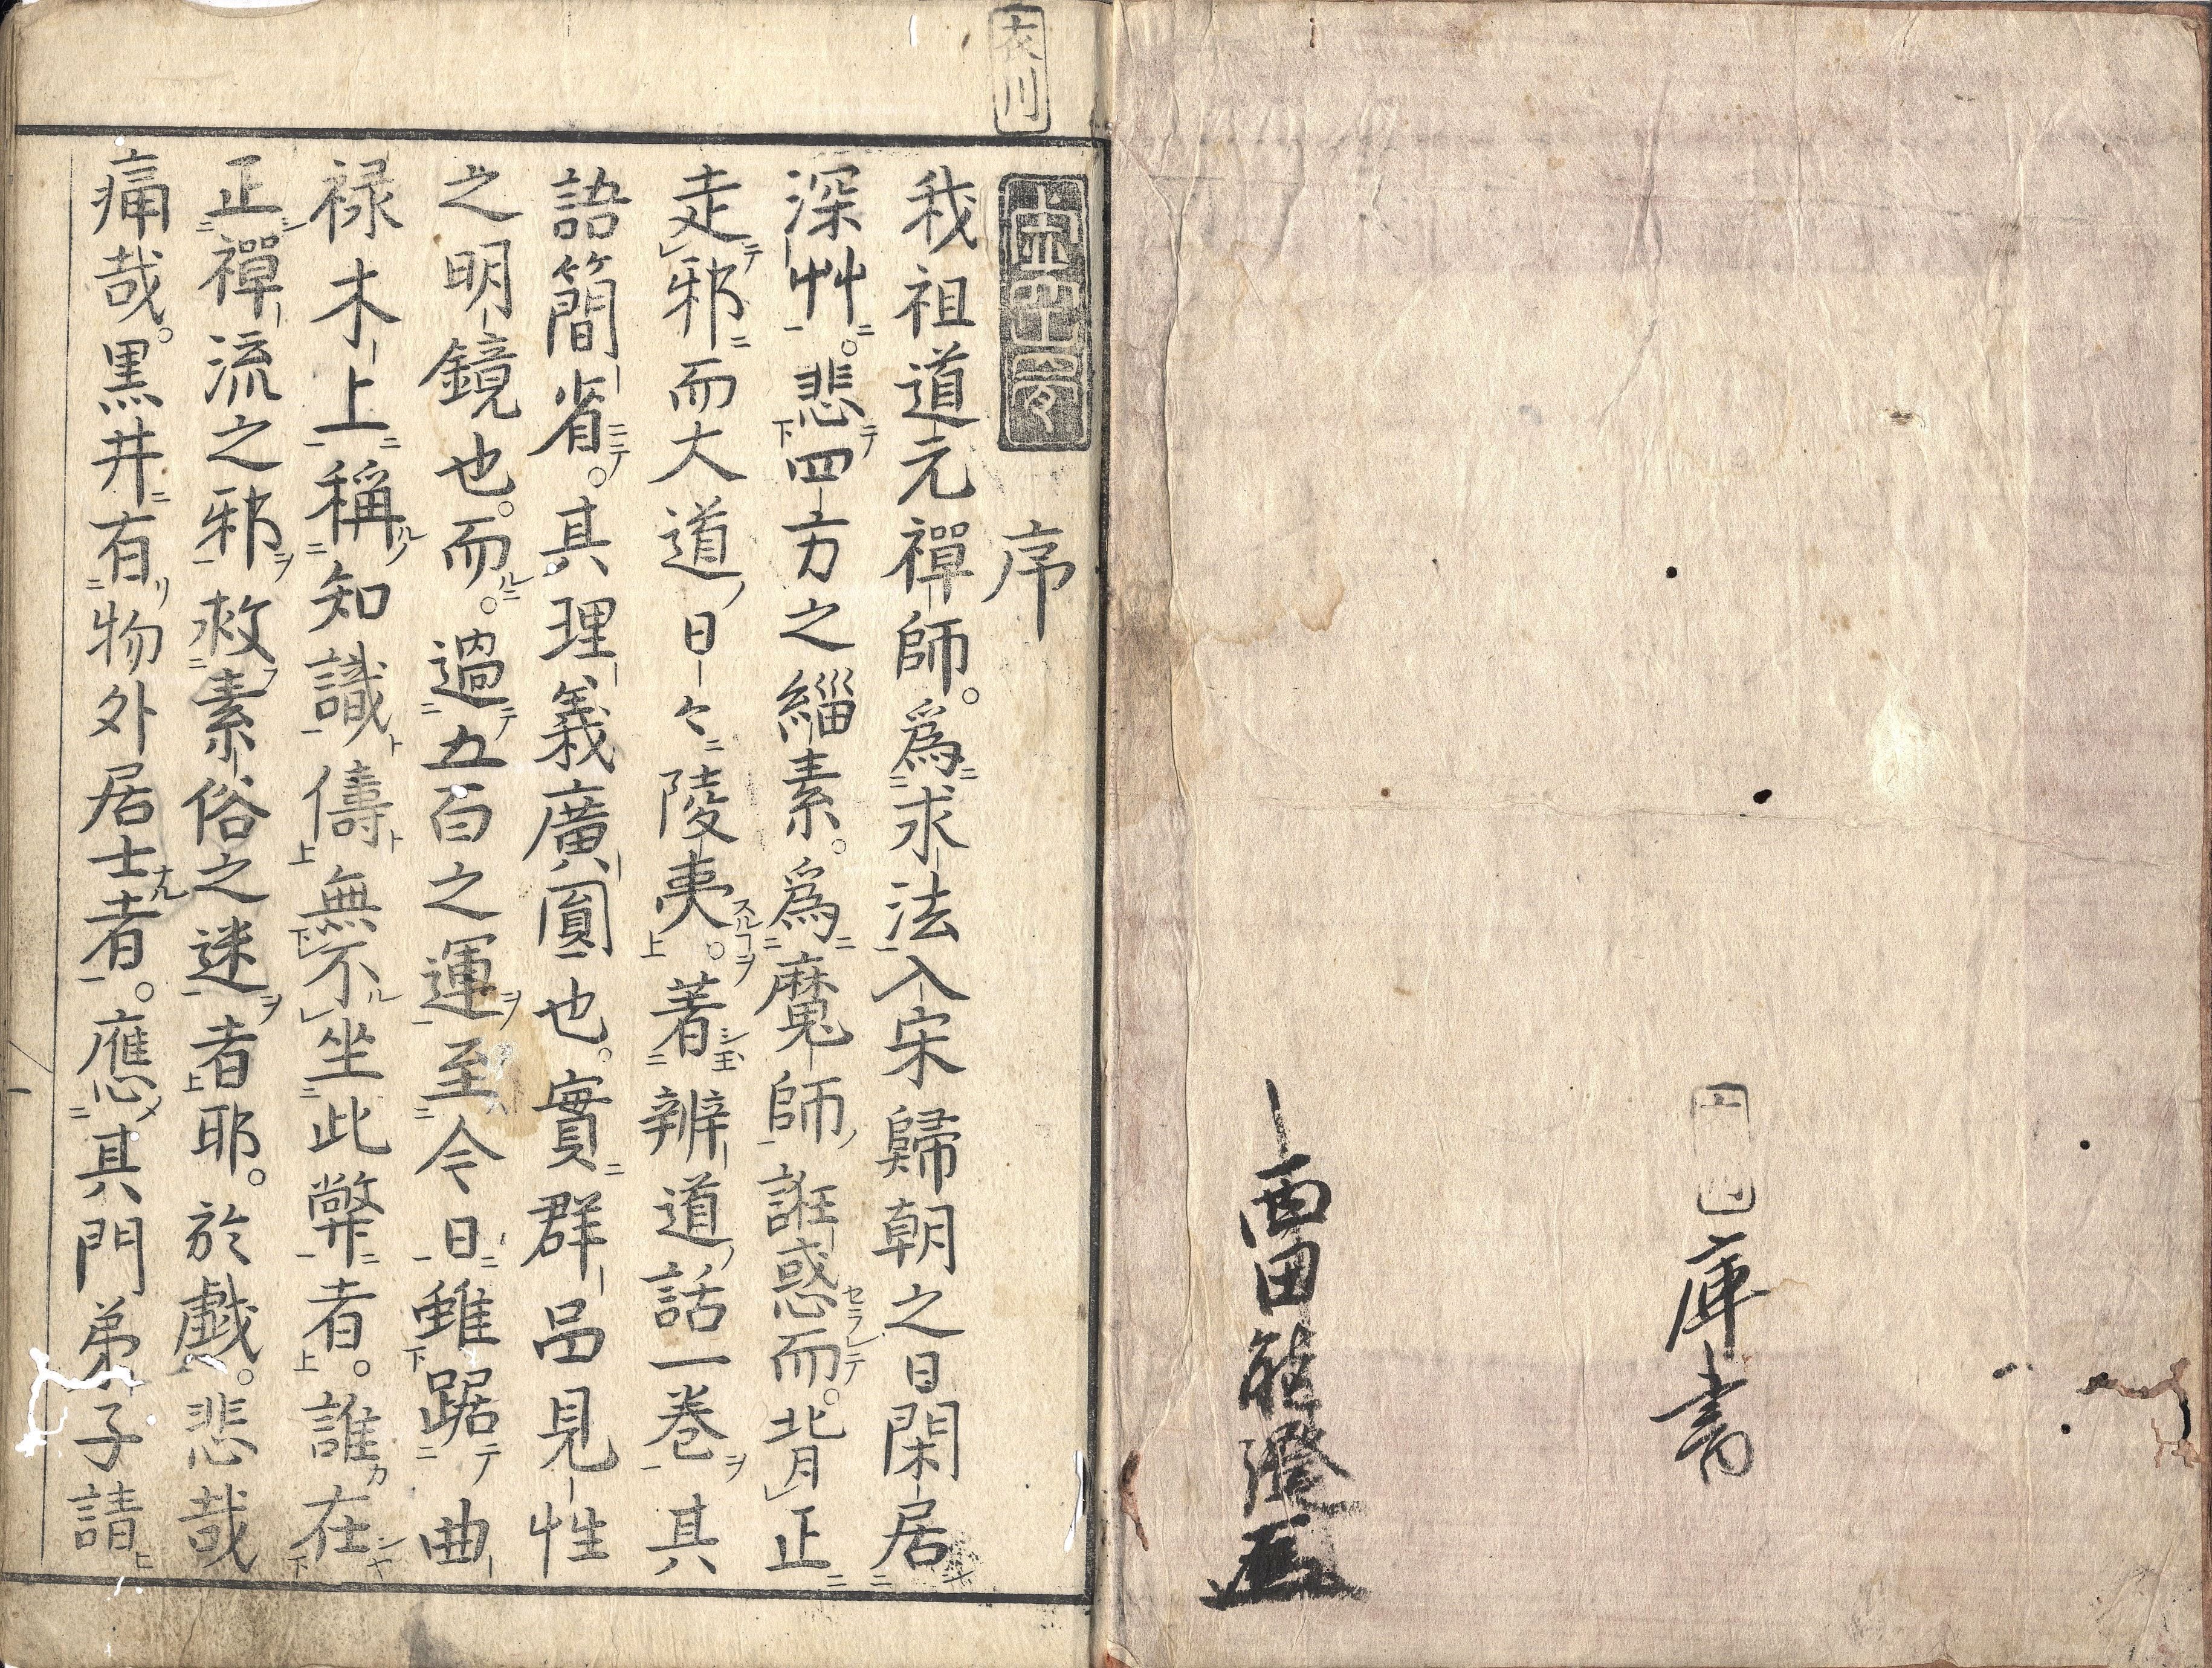 庫書
序
我祖道元禪師。爲求法入宋歸朝之日閑居
深艸。悲四方之緇素。爲魔師誑惑而。背正
走邪而大道日々陵夷。著辨道話一巻其
語簡省。其理義廣圓也。實群品見性
之明鏡也。而。過五百之運至今日雖踞曲
禄木上稱知識儔無不坐此弊者。誰在
正禪流之邪救素俗之迷者耶。於戯。悲哉
痛哉。黒井有物外居士者。應其門弟子請